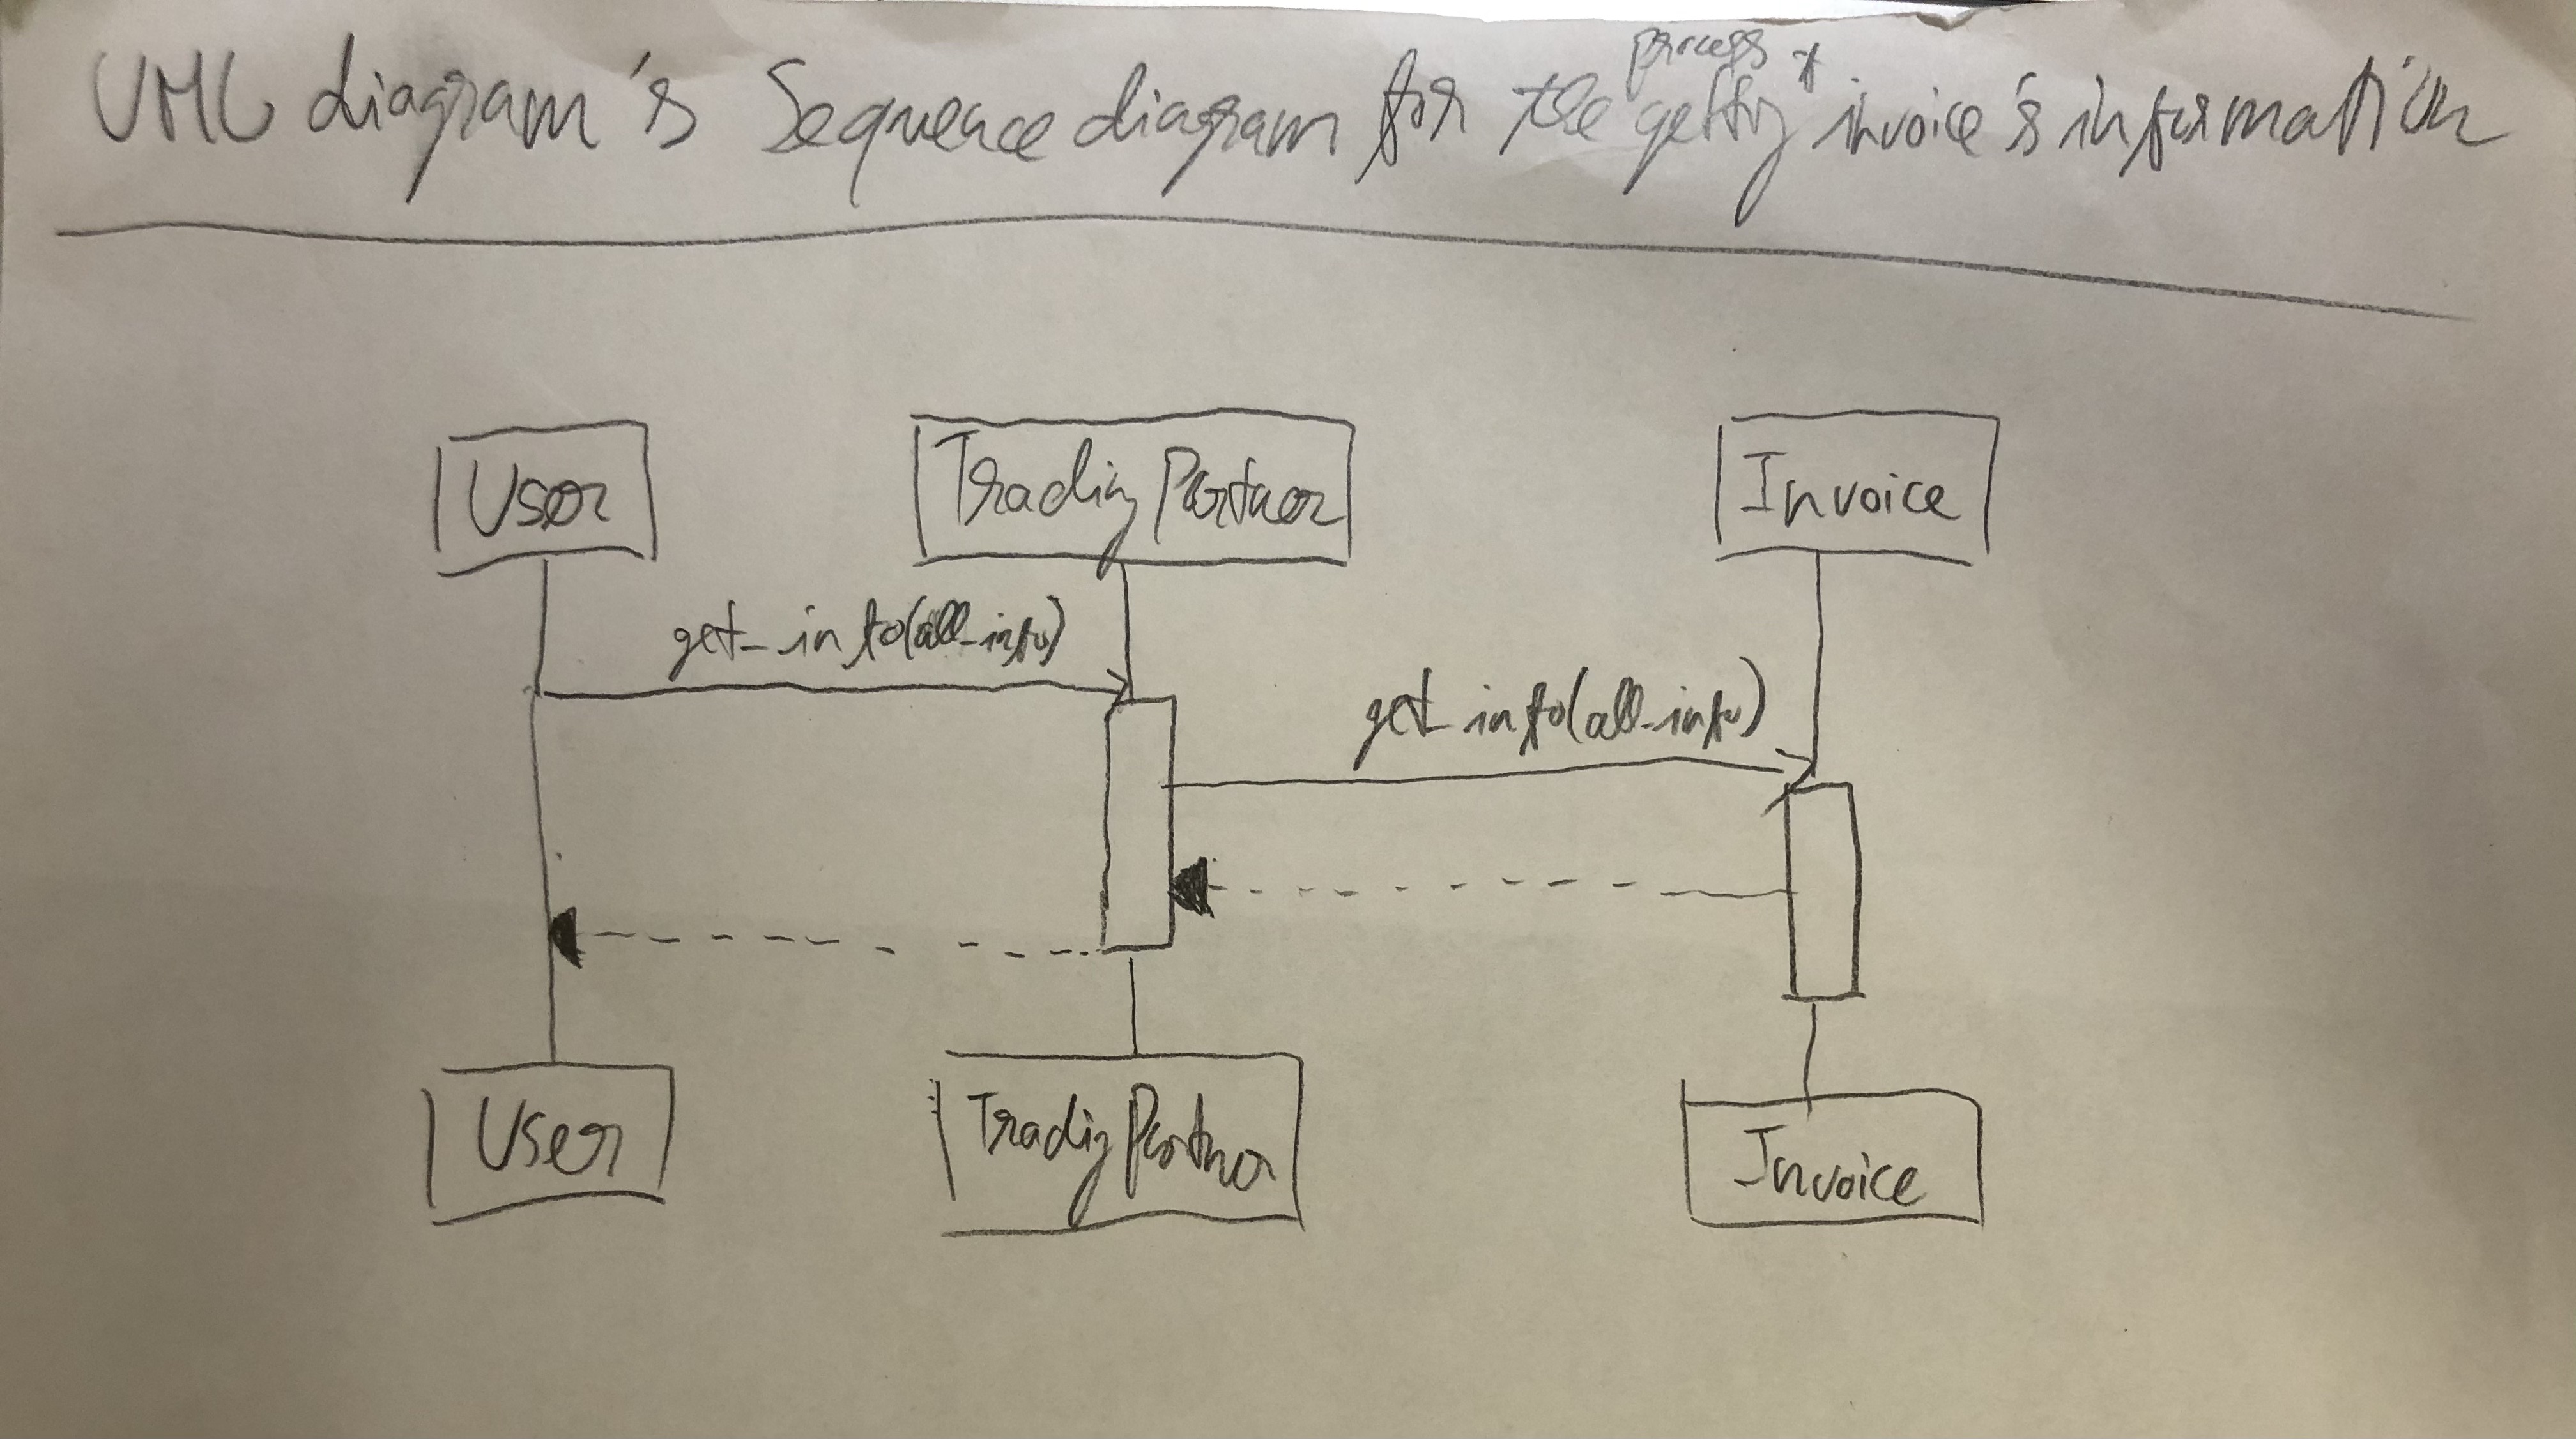 process of
UML diagram's Sequence diagram for the getting invoice's information
User
Trading Partner
Invoice
get_info(all_info)
get_info(all_info)
User
Trading Partner
Invoice